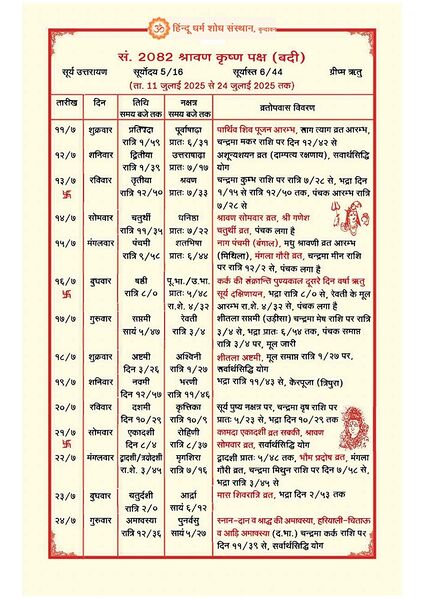 ॐ हिंन्दू धर्म शोध संस्थान, वृन्दावन
सं. 2082 श्रावण कृष्ण पक्ष (बदी)
सूर्य उत्तरायण सूर्योदय 5/16 सूर्यास्त 6/44 ग्रीष्म ऋतु
(ता. 11 जुलाई 2025 से 24 जुलाई 2025 तक)
तारीख दिन तिथि नक्षत्र व्रतोपवास विवरण
समय बजे तक समय बजे तक
११/७ शुक्रवार प्रतिपदा पूर्वाषाढ़ा पार्थिव शिव पूजन आरम्भ, साग त्याग व्रत आरम्भ,
रात्रि १/५९ प्रातः ६/३१ चन्द्रमा मकर राशि पर दिन १२/४२ से
१२/७ शनिवार द्वितीया उत्तराषाढ़ा अशून्यशयन व्रत (दाम्पत्य रक्षणाय), सवार्थसिद्धि
रात्रि १/३९ प्रातः ७/१७ योग
१३/७ रविवार तृतीया श्रवण चन्द्रमा कुम्भ राशि पर रात्रि ७/२८ से, भद्रा दिन
卐 रात्रि १२/५० प्रातः ७/३३ १/१५ से रात्रि १२/५० तक, पंचक आरम्भ रात्रि
७/२८ से
१४/७ सोमवार चतुर्थी धनिष्ठा श्रावण सोमवार व्रत, श्री गणेश
रात्रि ११/३५ प्रातः ७/२२ चतुर्थी व्रत, पंचक लगा है
१५/७ मंगलवार पंचमी शतभिषा नाग पंचमी (बंगाल), मधु श्रावणी व्रत आरम्भ
रात्रि ९/५८ प्रातः ६/४४ (मिथिला), मंगला गौरी व्रत, चन्द्रमा मीन राशि
पर रात्रि १२/२ से, पंचक लगा है
१६/७ बुधवार षष्ठी पू.भा./उ.भा. कर्क की संक्रान्ति पुण्यकाल दूसरे दिन वर्षा ऋतु
卐 रात्रि ८/० प्रातः ५/४८ सूर्य दक्षिणायन, भद्रा रात्रि ८/० से, रेवती के मूल
रा.शे. ४/३२ आरम्भ रा.शे. ४/३२ से, पंचक लगा है
१७/७ गुरुवार सप्तमी रेवती शीतला सप्तमी (उड़ीसा) चन्द्रमा मेष राशि पर रात्रि
सायं ५/४७ रात्रि ३/४ ३/४ से, भद्रा प्रातः ६/५४ तक, पंचक समाप्त
रात्रि ३/४ पर, मूल जारी
१८/७ शुक्रवार अष्टमी अश्विनी शीतला अष्टमी, मूल समाप्त रात्रि १/२७ पर,
दिन ३/२६ रात्रि १/२७ सर्वार्थसिद्धि योग
१९/७ शनिवार नवमी भरणी भद्रा रात्रि ११/४३ से, केरपूजा (त्रिपुरा)
दिन १२/५७ रात्रि ११/४६
२०/७ रविवार दशमी कृत्तिका सूर्य पुष्य नक्षत्र पर, चन्द्रमा वृष राशि पर
दिन १०/२९ रात्रि १०/९ प्रातः ५/२३ से, भद्रा दिन १०/२९ तक
२१/७ सोमवार एकादशी रोहिणी कामदा एकादशी व्रत सबकी, श्रावण
卐 दिन ८/४ रात्रि ८/३७ सोमवार व्रत, सर्वार्थसिद्धि योग
२२/७ मंगलवार द्वादशी/त्रयोदशी मृगशिरा द्वादशी प्रातः ५/४८ तक, भौम प्रदोष व्रत, मंगला
रा.शे. ३/४५ रात्रि ७/१६ गौरी व्रत, चन्द्रमा मिथुन राशि पर दिन ७/५८ से,
भद्रा रात्रि ३/४५ से
२३/७ बुधवार चतुर्दशी आर्द्रा मास शिवरात्रि व्रत, भद्रा दिन २/५३ तक
रात्रि २/० सायं ६/१२
२४/७ गुरुवार अमावस्या पुनर्वसु स्नान-दान व श्राद्ध की अमावस्या, हरियाली-चिताऊ
रात्रि १२/३६ सायं ५/२७ व आड़ि अमावस्या (द.भा.) चन्द्रमा कर्क राशि पर
दिन ११/३९ से, सर्वार्थसिद्धि योग